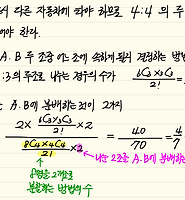 다른 자동차에 타야 하므로 4:4의 두
어야 한다.
A. B 두 조중 어느 조에 속하게 될지 결정하는 방법
:3의 두조로 나누는 경우의 수가 6C3×3C3/2!
는 A.B에 분배하는 것이 2가지
2× 6C3×3C3/2! ×2 / 8C4×4C4/2! ×2 = 40/70 = 4/7
나눈 2조를 A.B에 분배하는
8명을 2조로
분할하는 방법의 수